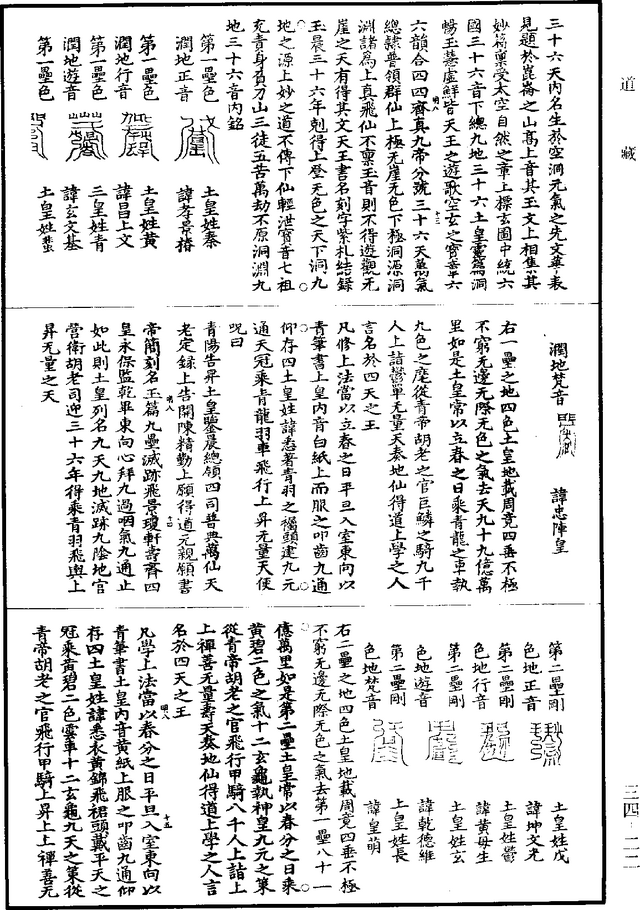 道藏
三十六天內名生於空洞元氣之先文華表
見題於崑崙之山高上音其玉文上相集其
妙術稟受太空自然之章上標玄圖中統六
國三十六音下總九地三十六土皇靈篇洞
暢玉慧虛鮮皆天王之遊歌空玄之寶章六
六韻合四四齊真九帝分號三十六天萬氣
總隸普領群仙上極无崖无色下極洞源洞
淵諸為上真飛仙不稟玉音則不得遊觀无
崖之天有得其文天王書名刻字紫札結錄
玉晨三十六年剋得上登无色之天下洞九
地之源上妙之道不傳下仙輕泄寶音七祖
充責身沒刀山三徒五苦萬劫不原洞淵九
地三十六音內銘
第一壘色
潤地正音
土皇姓秦
諱孝景椿
第一壘色
潤地行音
土皇姓黃
諱昌上文
第一壘色
潤地遊音
三皇姓青
諱玄文基
第一壘色
土皇姓蜚
潤地梵音
諱忠陣皇
右一壘之地四色土皇地載周竟四垂不極
不窮无邊无際无色之氣去天九十九億萬
里如是土皇常以立春之日乘青龍之車執
九色之麾從青帝胡老之官巨鱗之騎九千
人上詣鬱單无量天奏地仙得道上學之人
言名於四天之王
凡修上法當以立春之日平旦入室東向以
青筆書上皇內音白紙上而服之叩齒九通
仰存四土皇姓諱悉著青羽之襡頭建九元
通天冠乘青龍羽車飛行上昇无量天便
呪曰
青陽告昇土皇鑒晨總領四司普典萬仙天
老定錄上告開陳精勤上願得道元親願書
帝簡刻名玉篇九壘滅跡飛景瓊軒壽齊四
皇永保監乾畢東向心拜九過咽氣九通止
如此則土皇列名九天九地滅跡九陰地官
營衛胡老司迎三十六年得乘青羽飛輿上
昇无量之天
第二壘剛
色地正音
土皇姓戊
諱坤文光
第二壘剛
色地行音
土皇姓鬱
諱黃母生
第二壘剛
色地遊音
土皇姓玄
諱乾德維
第二壘剛
色地梵音
土皇姓長
諱皇萌
右二壘之地四色土皇地載周竟四垂不極
不窮无邊无際无色之氣去第一壘八十一
億萬里如是第二壘土皇常以春分之日乘
黃碧二色之氣十二玄龜執神皇九元之策
從青帝胡老之官飛行甲騎八千人上詣上
上禪善无量壽天奏地仙得道上學之人言
名於四天之王
凡學上法當以春分之日平旦入室東向以
青筆書土皇內音黃紙上服之叩齒九通仰
存四土皇姓諱悉衣黃錦飛裙頭戴平天之
冠乘黃碧二色雲車十二玄龜九天之策從
青帝胡老之官飛行甲騎上昇上上禪善无
三四–二二